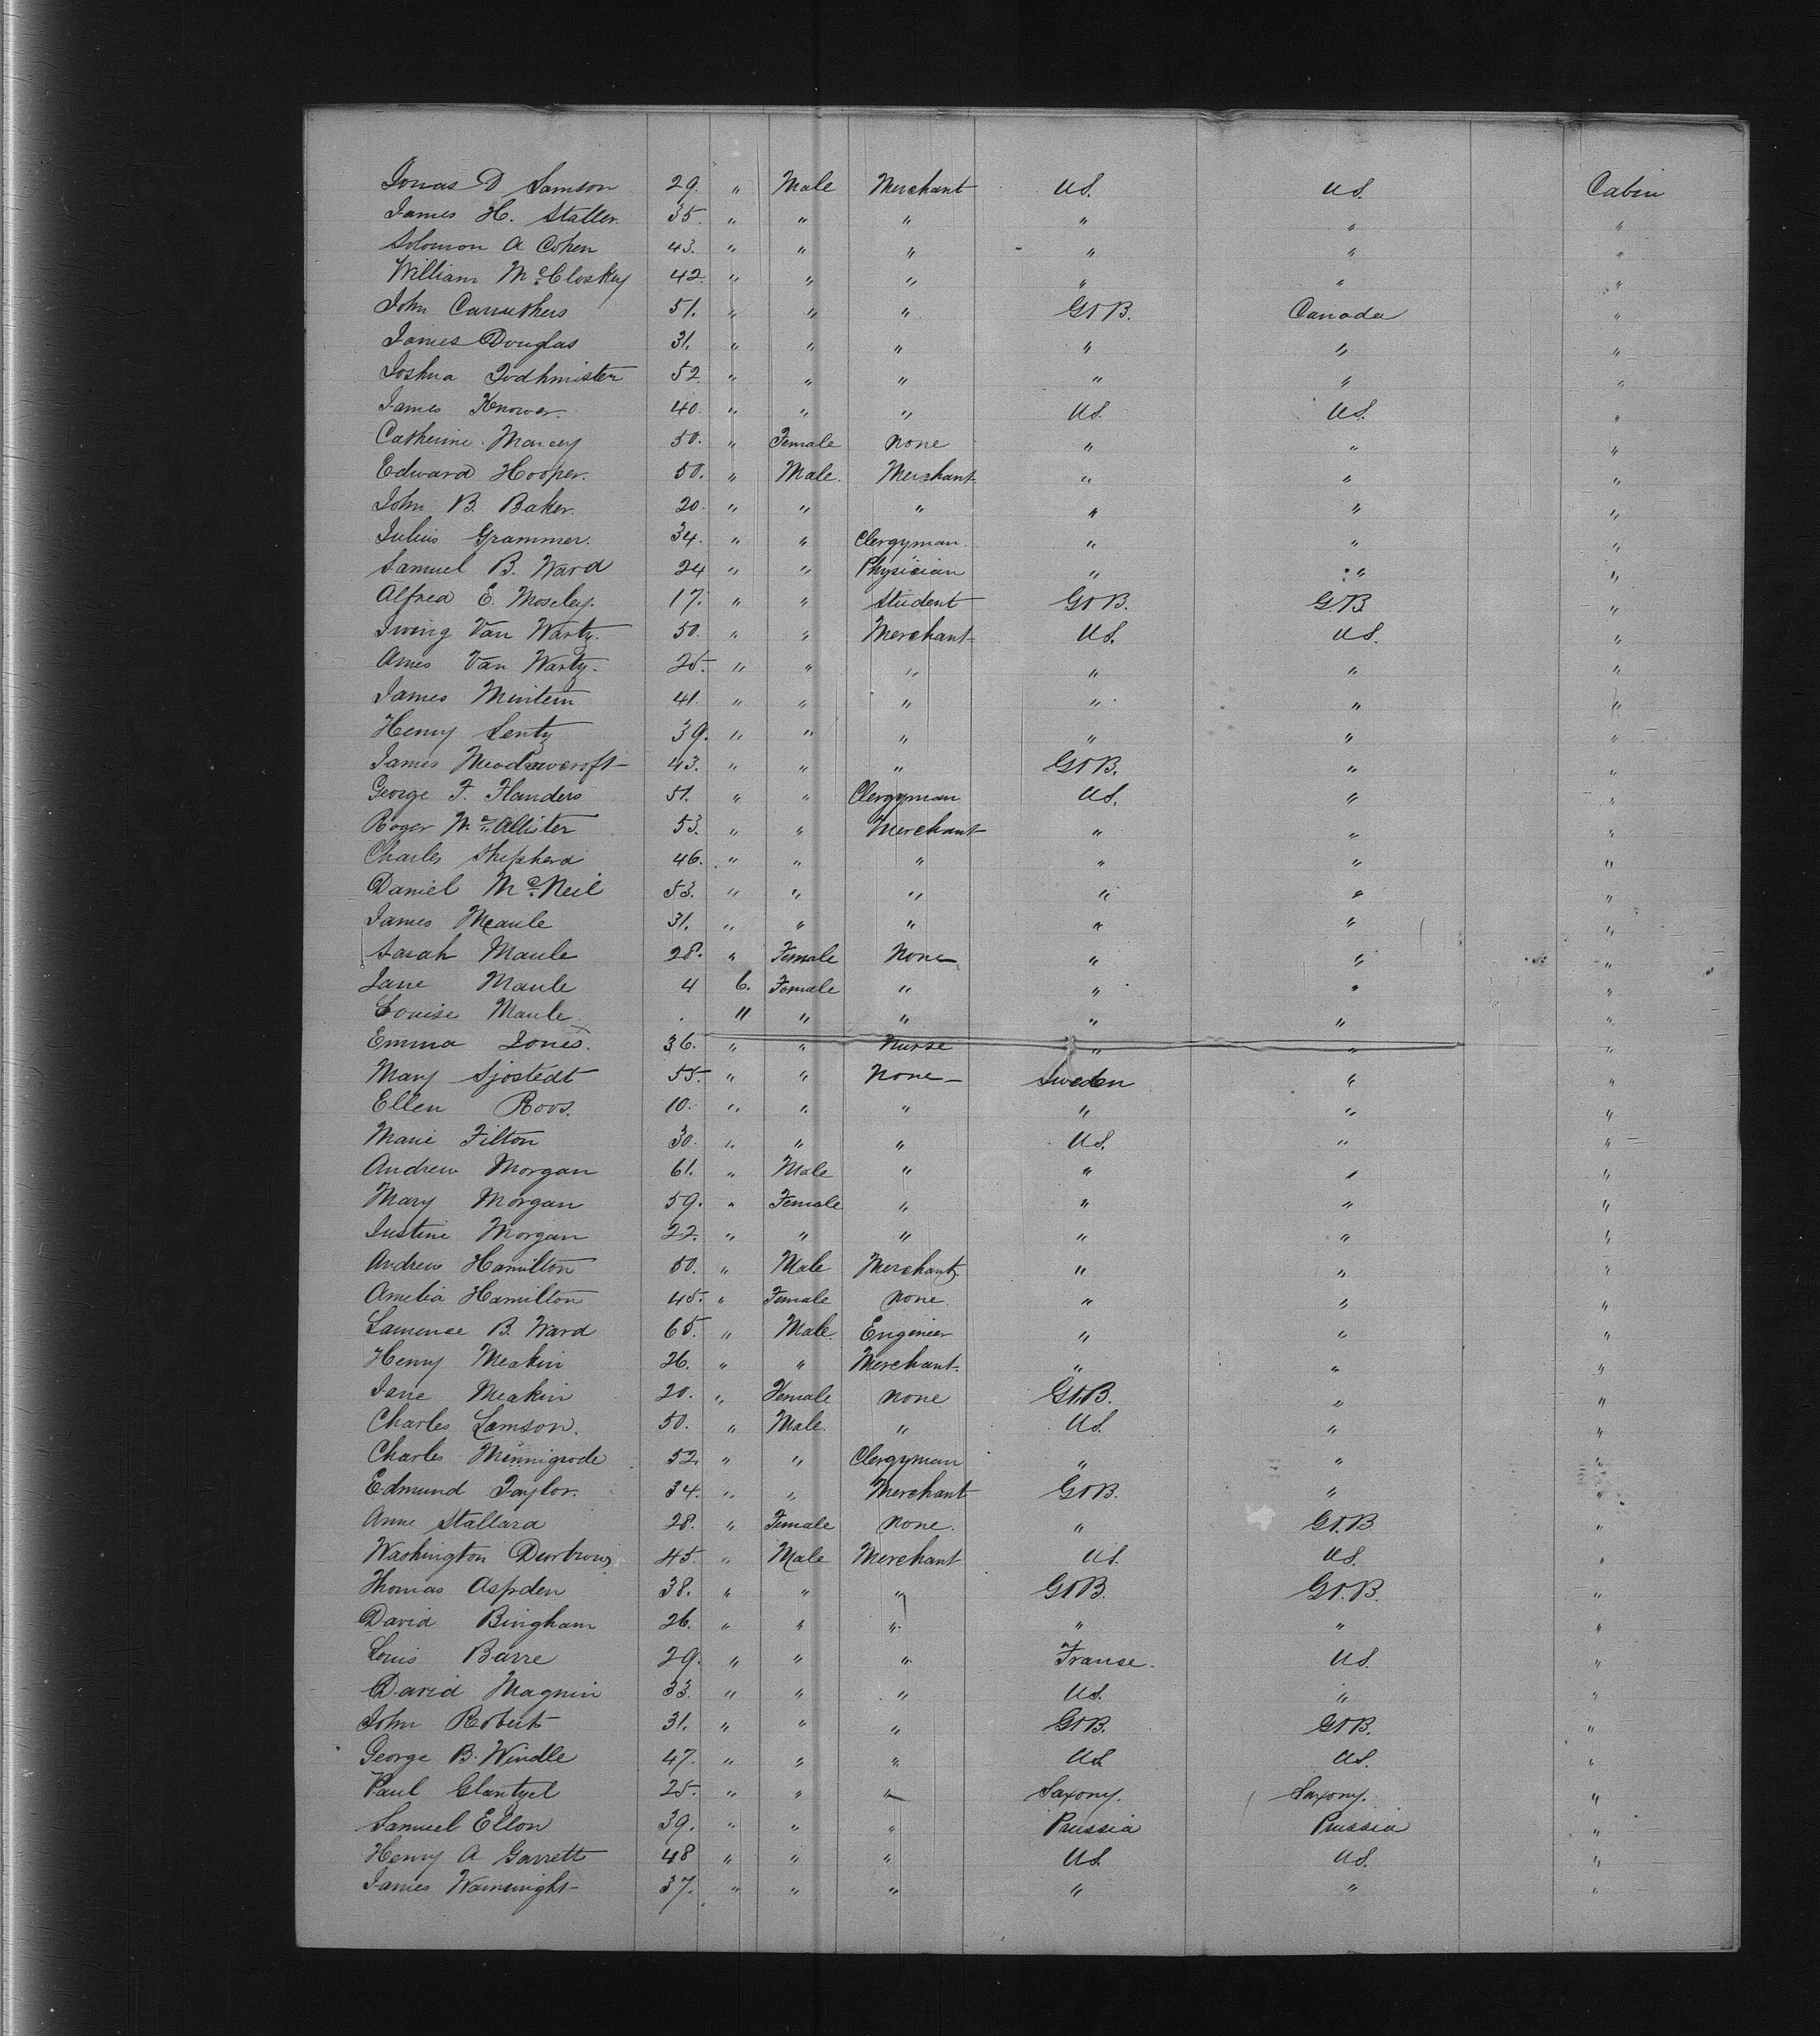 Jonas D Samson 29. " Male Merchant U.S. U.S. Cabin
James H. Staller. 35. " " " " " "
Solomon A Cohen 43. " " " " " "
William McCloskey 42 " " " " " "
John Carruthers 51. " " " Gt B. Canada "
James Douglas 31. " " " " " "
Joshua Todhmister 52 " " " " " "
James Knower. 40. " " " U.S. U.S. "
Catherine Marcy 50. " Female none " " "
Edward Hooper. 50. " Male. Merchant. " " "
John B. Baker. 20. " " " " " "
Julius Grammer. 34. " " Clergyman. " " "
Samuel B. Ward 24 " " Physician " " "
Alfred E. Moseley. 17. " " Student Gt B. G.B "
Irving Van Wartz. 50. " " Merchant U.S. U.S. "
Ames Van Wartz. 25. " " " " " "
James Minturn 41. " " " " " "
Henry Lentz 39. " " " " " "
James Meadowcroft 43. " " " Gt B. " "
George F. Flanders 51. " " Clergyman U.S. " "
Roger McAllister 53. " " Merchant " " "
Charles Shepherd 46. " " " " " "
Daniel McNeil 53. " " " " " "
James Meaule 31. " " " " " "
Sarah Maule 28. " Female None " " "
Jane Maule 4 6. Female " " " "
Louise Maule . 11 " " " " "
Emma Jones. 36. " " Nurse " " "
Mary Sjostedt 55. " " None Sweden " "
Ellen Roos. 10. " " " " " "
Marie Filton 30. " " " U.S. " "
Andrew Morgan 61. " Male " " " "
Mary Morgan 59. " Female " " " "
Justine Morgan 22. " " " " " "
Andrew Hamilton 50. " Male Merchant " " "
Amelia Hamilton 45. " Female none. " " "
Lawrence B. Ward 65. " Male. Engineer " " "
Henry Meakin 26. " " Merchant. " " "
Jane Meakin 20. " Female none Gt B. " "
Charles Lamson. 50. " Male. " U.S. " "
Charles Minnigrode 52 " " Clergyman " " "
Edmund Taylor. 34. " " Merchant Gt B. " "
Anne Stallard 28. " Female none. " Gt. B. "
Washington Durbrow 45. " Male Merchant U.S. U.S. "
Thomas Aspden 38. " " " Gt B. Gt. B. "
David Bingham 26. " " " " " "
Louis Barre 29. " " " Franse. U.S. "
David Magnin 33. " " " U.S. " "
John Roberts 31. " " " Gt B. Gt B. "
George B. Windle 47. " " " U.S. U.S. "
Paul Glantzel 25. " " " Saxony. Saxony. "
Samuel Ellon 39. " " " Prussia Prussia "
Henry A Garrett 48 " " " U.S. U.S. "
James Wainwright 37. " " " " " "